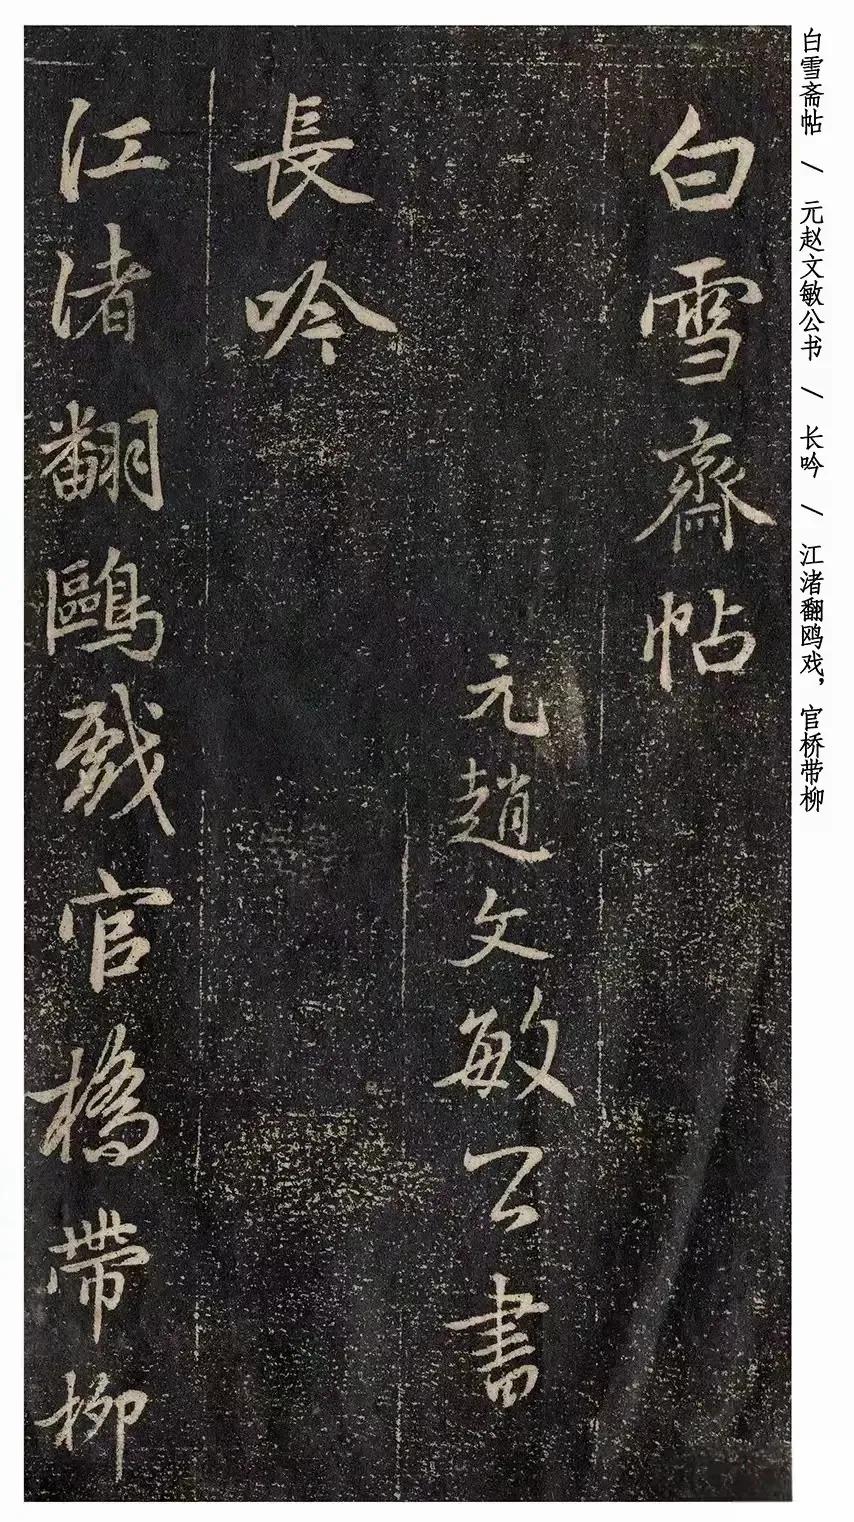 白雪齋帖
元趙文敏公書
長吟
江渚翻鷗戲官橋帶柳
白雪斋帖 / 元赵文敏公书 / 长吟 / 江渚翻鸥戏，官桥带柳